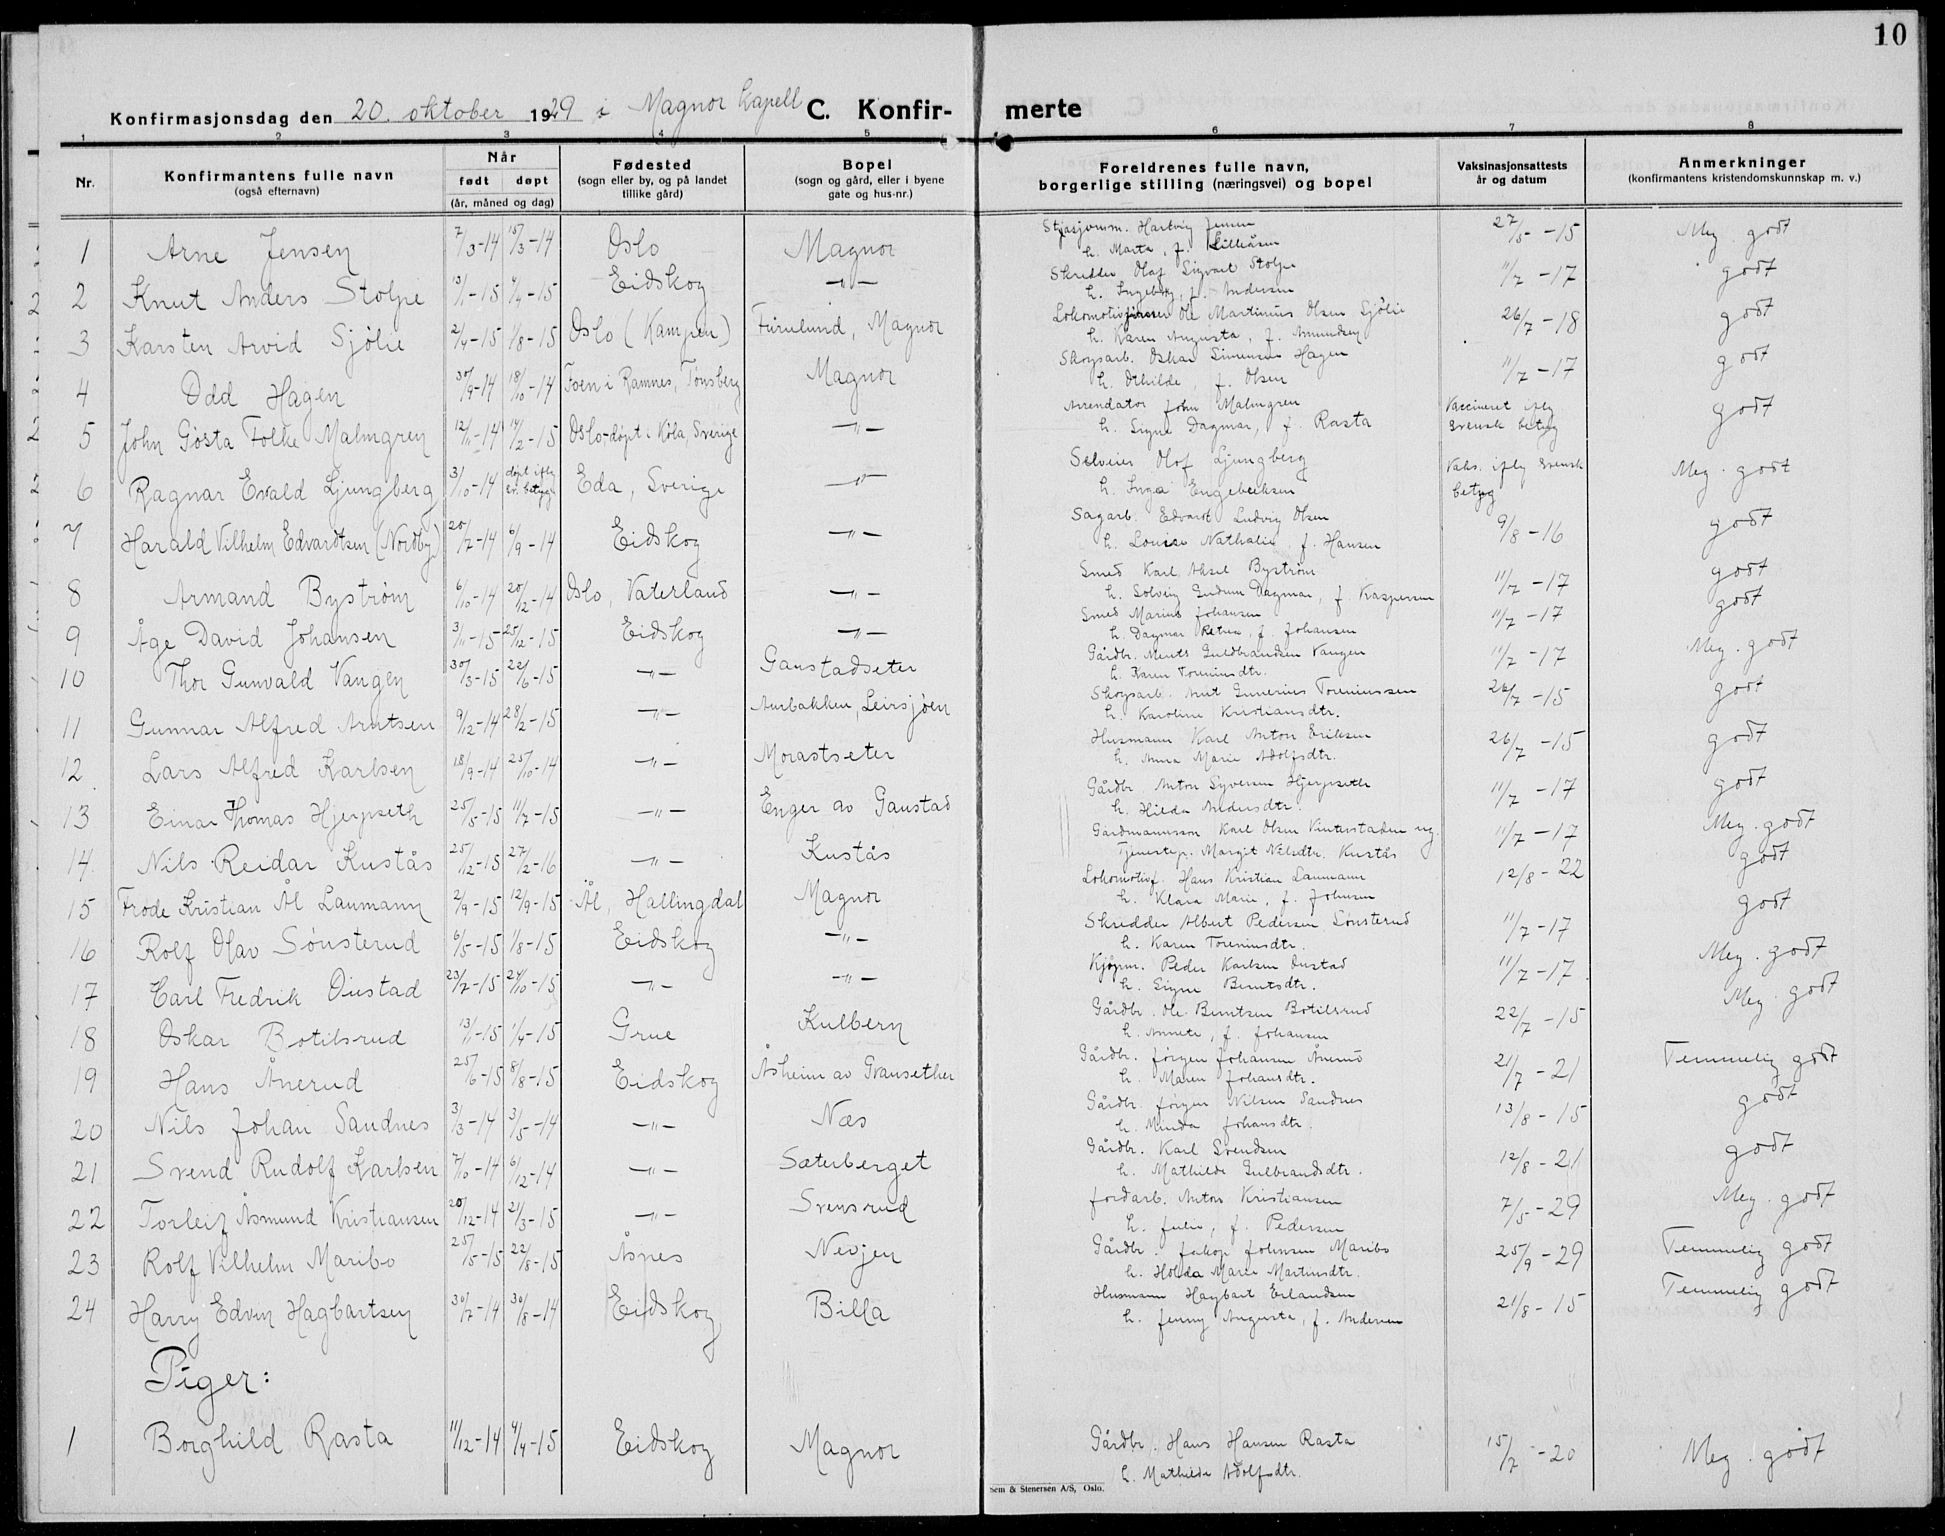 10
Konfirmasjonsdag den 20. oktober 1929 i Magnor kapell C. Konfir- merte
1 2 3 4 5 6 7 8
Nr. Konfirmantens fulle navn (også efternavn) Når født døpt (år, måned og dag) Fødested (sogn eller by, og på landet tillike gård) Bopel (sogn og gård, eller i byene gate og hus-nr.) Foreldrenes fulle navn, borgerlige stilling (næringsvei) og bopel Vaksinasjonsattests år og datum Anmerkninger (konfirmantens kristendomskunnskap m. v.)
1 Arne Jensen 7/3-14 15/3-14 Oslo Magnor Hartvig Jensen 27/5-15 Meg. godt
h. Marta, f. Lilleåsen
2 Knut Anders Stolpe 13/1-15 4/4-15 Eidskog -"- Skredder Olaf Sigvart Stolpe 11/7-17 godt
h. Ingeborg, f. Andersen
3 Karsten Arvid Sjølie 2/4-15 1/8-15 Oslo (Kampen) Furulund, Magnor Ole Martinius Olsen Sjølie 26/7-18 godt
h. Karen Augusta, f. Amundsen
4 Odd Hagen 30/9-14 18/10-14 Foen i Ramnes, Tønsberg Magnor Skogsarb. Oskar Simensen Hagen 11/7-17 godt
h. Othilde, f. Olsen
5 John Gösta Folke Malmgren 12/11-14 14/2-15 Oslo-døpt i Köla, Sverige -"- Arrendator John Malmgren Vaccineret iflg svensk betyg godt
h. Signe Dagmar, f. Rasta
6 Ragnar Evald Ljungberg 31/10-14 døpt iflg sv. betyg Eda, Sverige -"- Selveier Olof Ljungberg Vaks. iflg svensk betyg Meg. godt
h. Inga Engebretsen
7 Harald Vilhelm Edvardtsen (Nordby) 20/7-14 6/9-14 Eidskog -"- Sagarb. Edvardt Ludvig Olsen 9/8-16 godt
h. Louise Nathalie, f. Hansen
8 Armand Byström 6/10-14 20/12-14 Oslo, Vaterland -"- Smed Karl Aksel Byström 11/7-17 godt
h. Solveig Gudrun Dagmar, f. Kaspersen
9 Åge David Johansen 3/11-15 25/12-15 Eidskog -"- Smed Marius Johansen 11/7-17 godt
h. Dagmar Petrea, f. Johansen
10 Thor Gunvald Vangen 30/3-15 22/6-15 -"- Gaustadseter Gårdbr. Guldbrandsen Vangen 11/7-17 Meg. godt
h. Karen Toreniusdtr.
11 Gunnar Alfred Arntsen 9/12-14 28/2-15 -"- Aurbakken, Leirsjøen Skogsarb. Arnt Gunerius Toreniussen 26/7-15 godt
h. Karoline Kristiansdtr.
12 Lars Alfred Karlsen 18/9-14 25/10-14 -"- Morastseter Husmann Karl Anton Eriksen 26/7-15 godt
h. Anna Marie Adolfsdtr.
13 Einar Thomas Hjerpseth 25/5-15 11/7-15 -"- Enger av Gaustad Gårdbr. Anton Syversen Hjerpseth 11/7-17 godt
h. Hilda Andersdtr.
14 Nils Reidar Kustås 25/12-15 27/2-16 -"- Kustås Gårdmannssøn Karl Olsen Vinterstaden ug. 11/7-17 Meg. godt
Tjenestep. Margit Nilsdtr. Kustås
15 Frode Kristian Ål Laumann 2/9-15 12/9-15 Ål, Hallingdal Magnor Lokomotivf. Hans Kristian Laumann 12/8-22 godt
h. Klara Marie, f. Johnsen
16 Rolf Olav Sønsterud 6/5-15 1/8-15 Eidskog -"- Skredder Albert Pedersen Sønsterud 11/7-17 godt
h. Karen Toreniusdtr.
17 Carl Fredrik Oustad 23/7-15 24/10-15 -"- -"- Kjøpm. Peder Karlsen Oustad 11/7-17 Meg. godt
h. Signe Berntsdtr.
18 Oskar Botilsrud 13/1-15 1/4-15 Grue Kulbern Gårdbr. Ole Berntsen Botilsrud 22/7-15 Meg. godt
h. Annete, f. Johansen
19 Hans Ånerud 25/6-15 8/8-15 Eidskog Åsheim av Gransether Gårdbr. Jørgen Johansen Ånerud 21/7-21 Temmelig godt
h. Maren Johansdtr.
20 Nils Johan Sandnes 3/3-14 3/5-14 -"- Næs Gårdbr. Jørgen Nilsen Sandnes 13/8-15 godt
h. Minda Johansdtr.
21 Svend Rudolf Karlsen 7/10-14 6/12-14 -"- Sæterberget Gårdbr. Karl Svendsen 12/8-21 godt
h. Mathilde Gulbrandsdtr.
22 Torleif Åsmund Kristiansen 20/12-14 21/3-15 -"- Svensrud Jordarb. Anton Kristiansen 7/5-29 Meg. godt
h. Julie, f. Pedersen
23 Rolf Vilhelm Maribo 25/5-15 22/8-15 Åsnes Nevjen Gårdbr. Jakop Johnsen Maribo 25/9-29 Temmelig godt
h. Hulda Marie Martinsdtr.
24 Harry Edvin Hagbartsen 30/7-14 30/8-14 Eidskog Billa Husmann Hagbart Erlandsen 21/8-15 Temmelig godt
h. Jenny Augusta, f. Andersen
Piger:
1 Borghild Rasta 11/12-14 4/4-15 Eidskog Magnor Gårdbr. Hans Hansen Rasta 15/7-20 Meg. godt
h. Mathilde Adolfsdtr.
Sem & Stenersen A/S, Oslo.